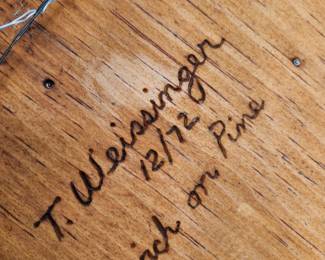 T. Weissinger
12/72
on Pine